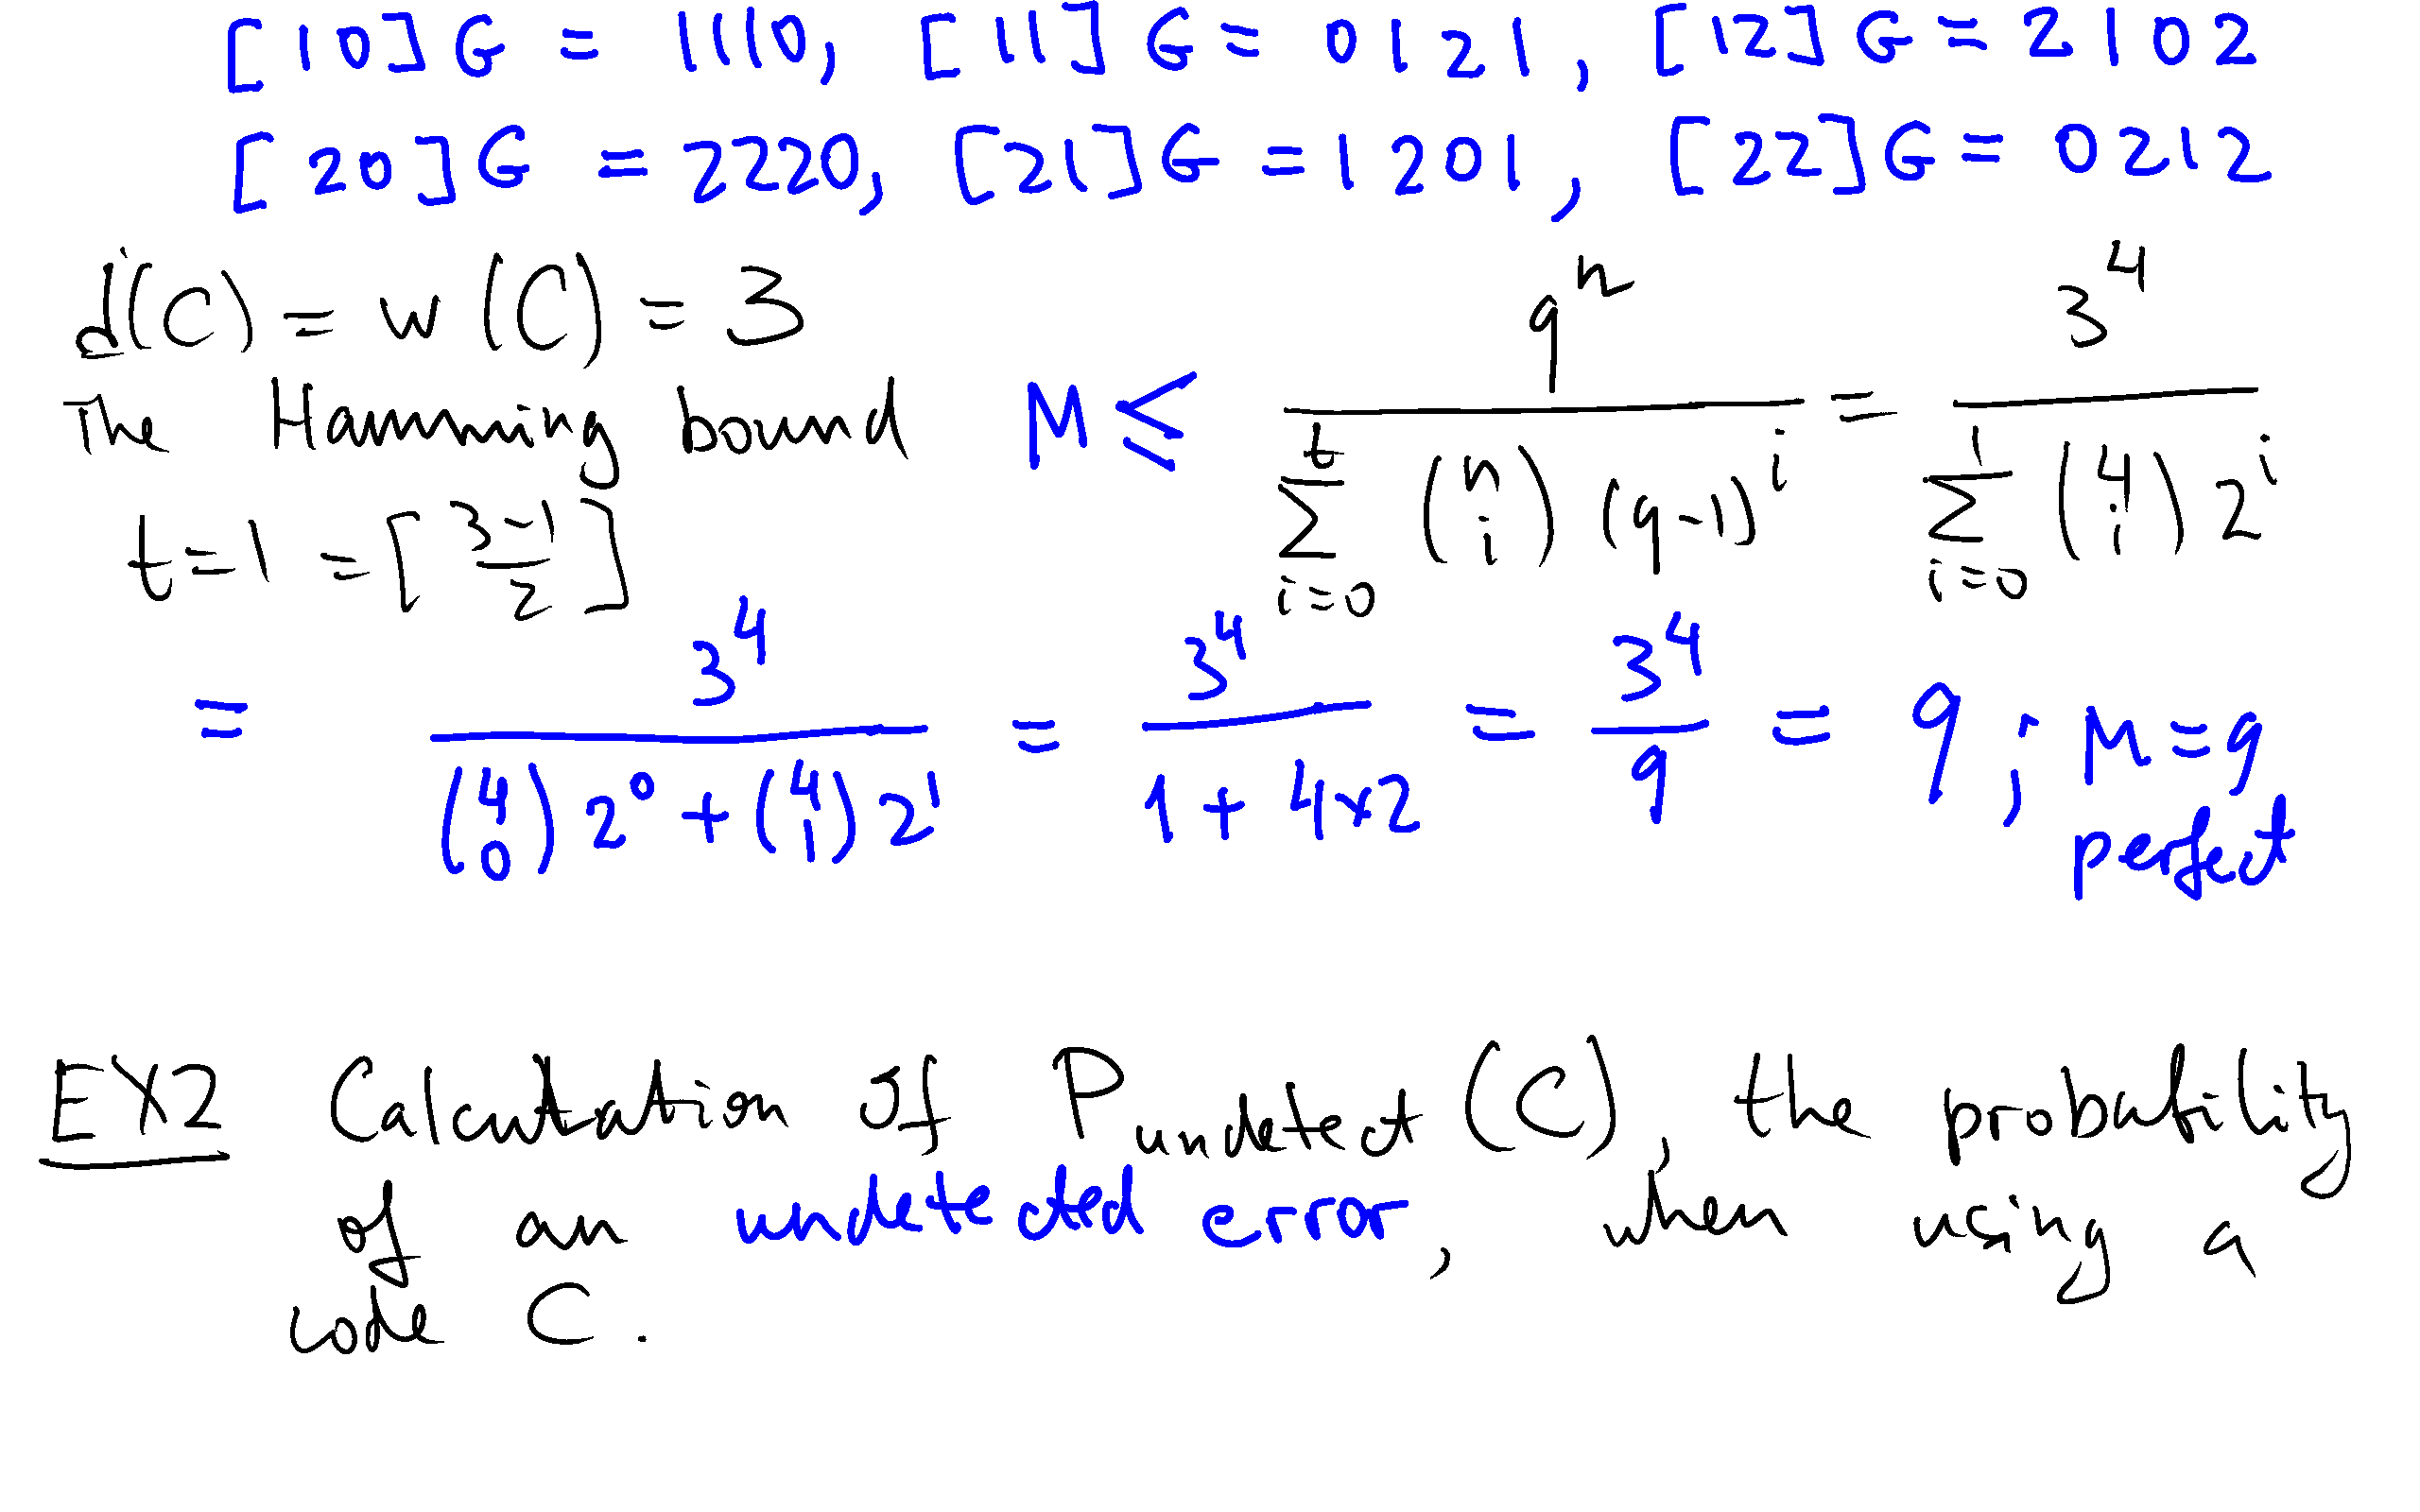 [10]G = 1110, [11]G = 0121, [12]G = 2102
[20]G = 2220, [21]G = 1201, [22]G = 0212
d(C) = w(C) = 3
The Hamming bound M ≤ q^n / ∑_{i=0}^{t} (n i) (q-1)^i = 3^4 / ∑_{i=0}^{1} (4 i) 2^i
t=1 = [3-1/2]
= 3^4 / (4 0) 2^0 + (4 1) 2^1 = 3^4 / 1 + 4×2 = 3^4 / 9 = 9 ; M=9
perfect
EX2 Calculation of P undetect (C), the probability
of an undetected error, when using a
code C.